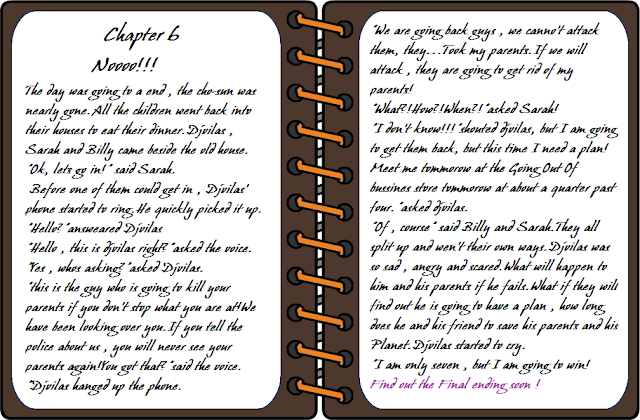 Chapter 6
Noooo!!!
The day was going to a end , the cho-sun was
nearly gone. All the children went back into
their houses to eat their dinner. Djvilas ,
Sarah and Billy came beside the old house.
"Ok, lets go in!" said Sarah.
Before one of them could get in , Djvilas'
phone started to ring. He quickly picked it up.
"Hello?" answeared Djvilas
"Hello , this is djvilas right?" asked the voice.
"Yes , whos asking?" asked Djvilas.
"this is the guy who is going to kill your
parents if you don't stop what you are at!We
have been looking over you. If you tell the
police about us , you will never see your
parents again!You got that?" said the voice.
"Djvilas hanged up the phone.
"We are going back guys , we canno't attack
them, they...Took my parents. If we will
attack , they are going to get rid of my
parents!
"What?!How?!When?!" asked Sarah!
"I don't know!!!" shouted djvilas, but I am going
to get them back, but this time I need a plan!
Meet me tommorow at the Going Out Of
bussines store tommorow at about a quarter past
four. "asked djvilas.
"Of , course" said Billy and Sarah.They all
split up and wen't their own ways. Djvilas was
so sad , angry and scared. What will happen to
him and his parents if he fails. What if they will
find out he is going to have a plan , how long
does he and his friend to save his parents and his
Planet. Djvilas started to cry.
"I am only seven , but I am going to win!
Find out the Final ending soon !